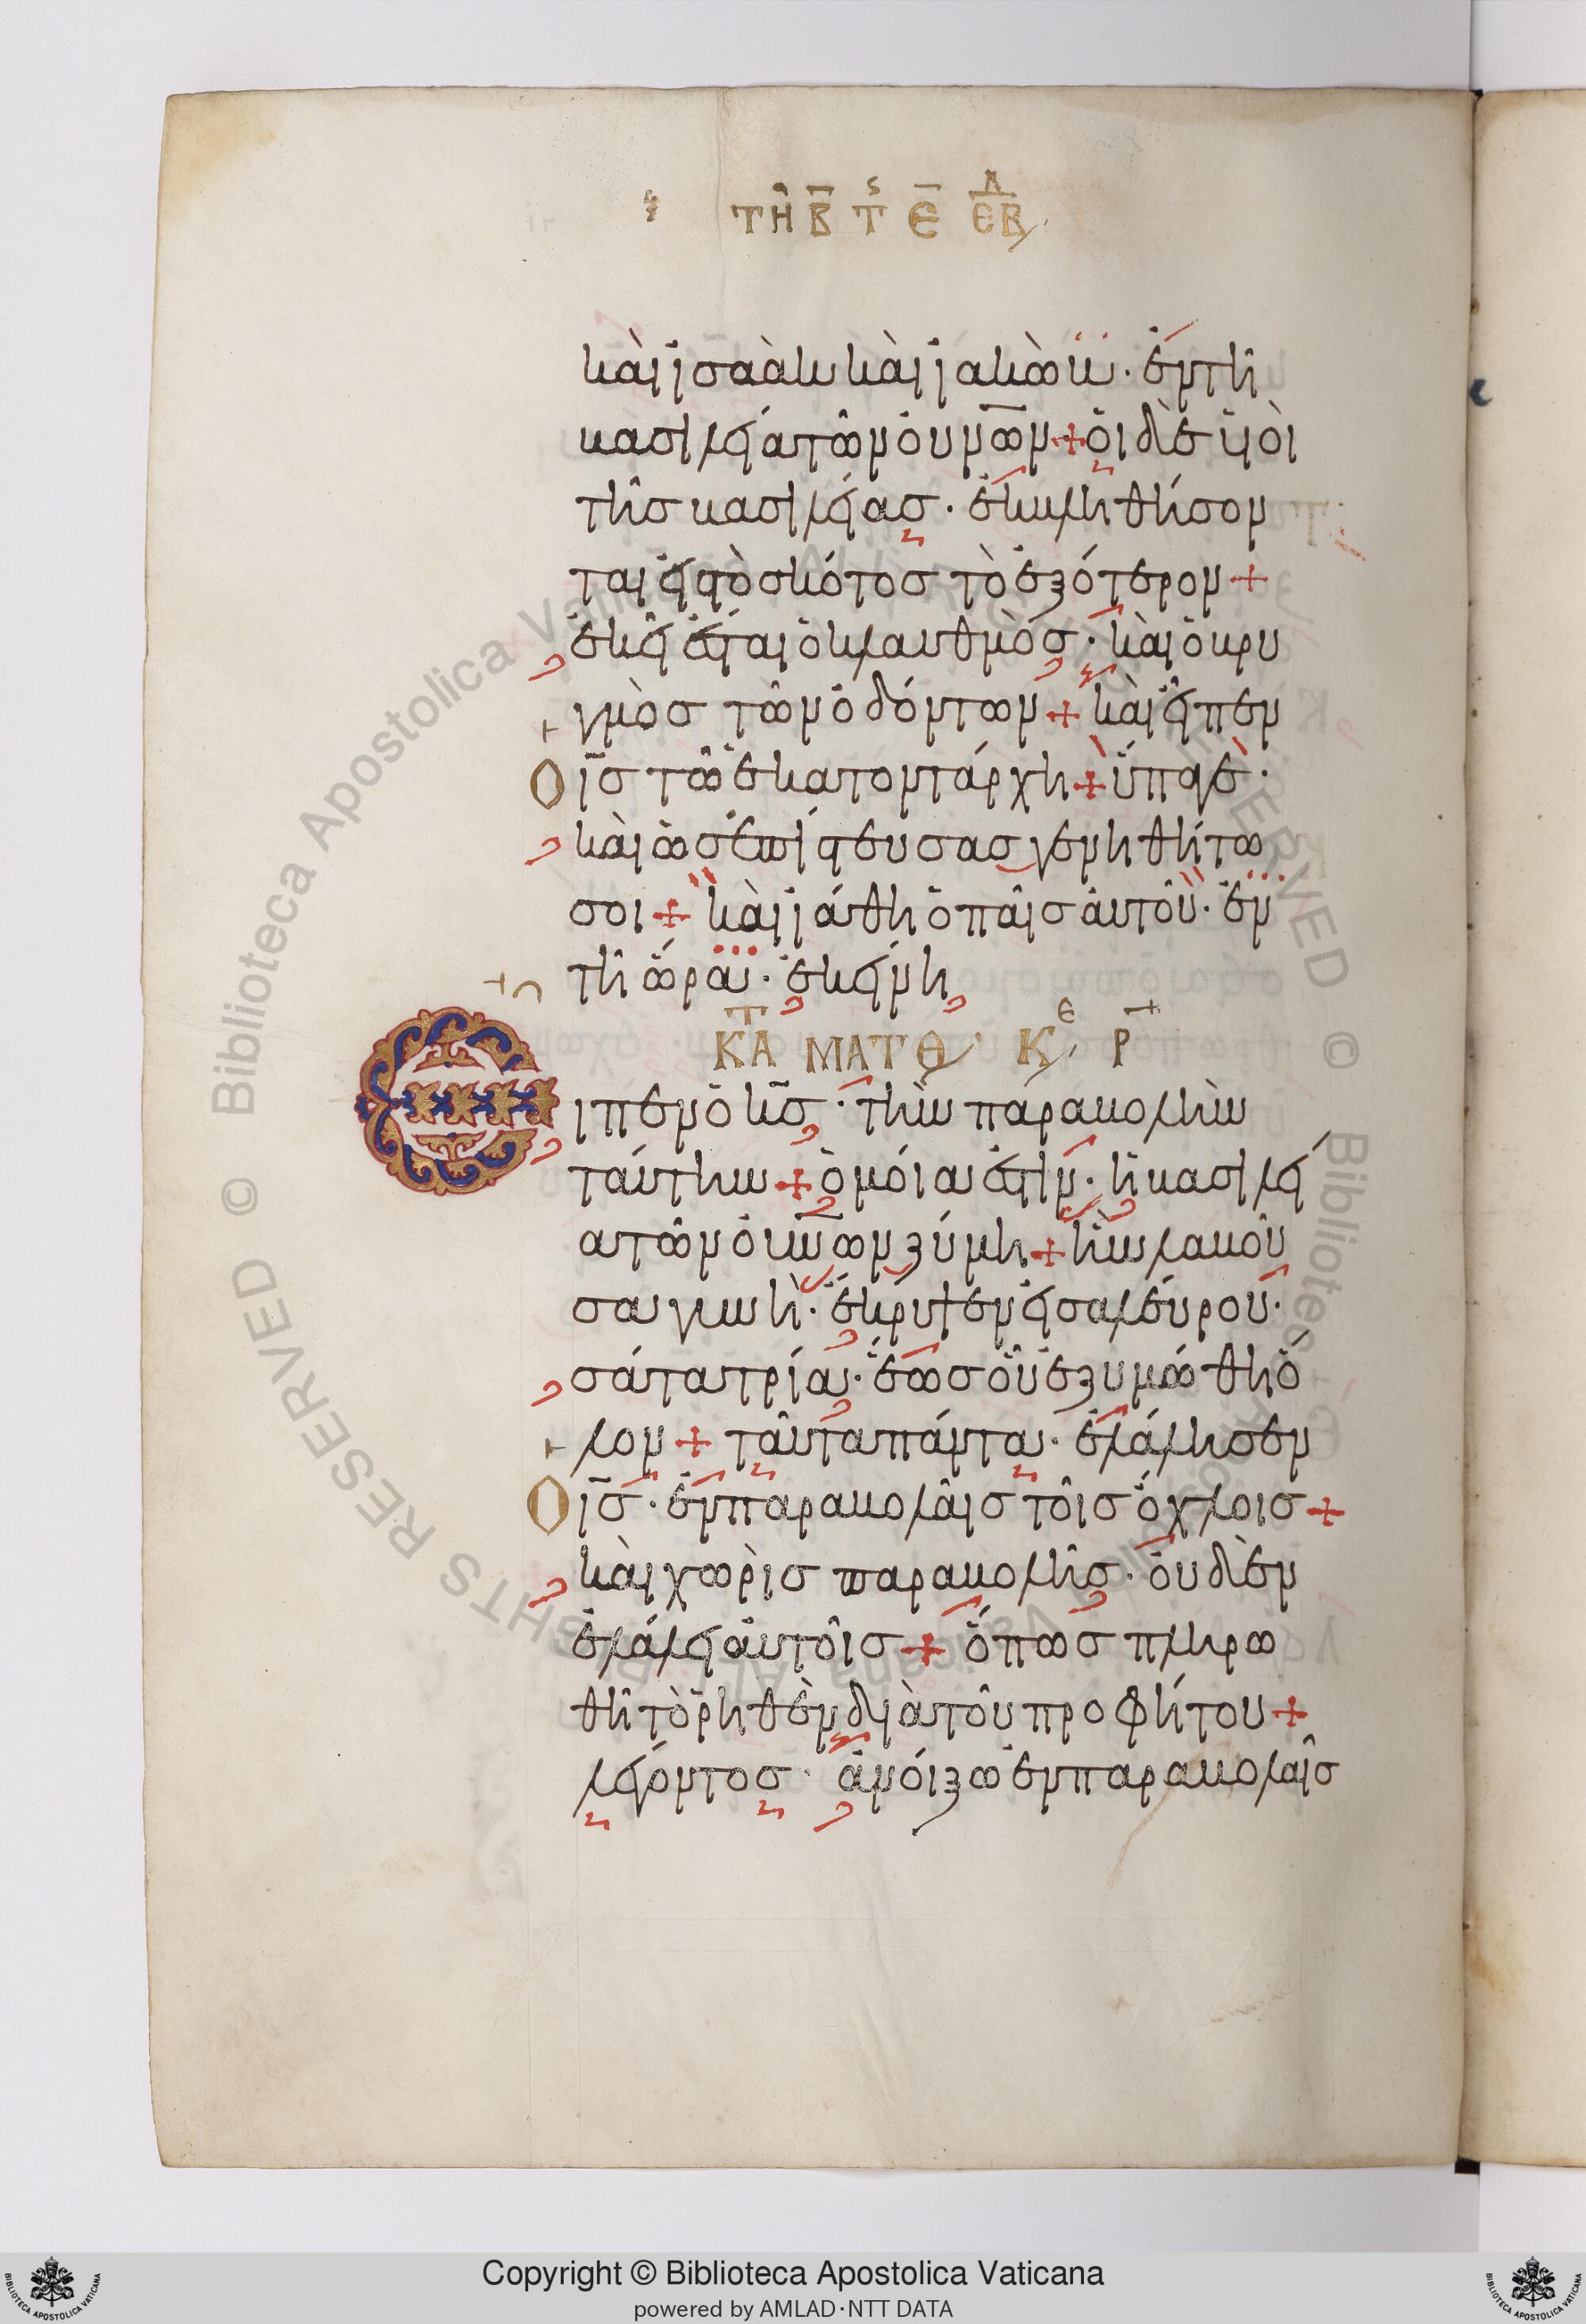 ΤΗ Β Τ Ε ΕΒΔ
καὶ ἰσαὰκ καὶ ἰακὼβ· ἐν τῆ
βασιλείᾳ τῶν οὐνῶν + οἱ δὲ υἱοὶ
τῆσ βασιλείασ· ἐκβληθήσον
ται εἰς τὸ σκότοσ τὸ ἐξότερον +
ἐκεῖ ἔσται ὁ κλαυθμὸσ· καὶ ὁ βρυ
γμὸσ τῶν ὀδόντων + καὶ εἶπεν
Ο ισ τῶ ἑκατοντάρχη + ὕπαγε·
καὶ ὡσ ἐπίστευσασ γενηθήτω
σοι + καὶ ἰάθη ὁ παῖσ αὐτοῦ· ἐν
τῆ ὥρα· ἐκείνη
ΚΑΤ ΜΑΤΘ· Κε Ρ
Ειπεν ὁ κσ· τὴν παραβολὴν
ταύτην + ὁμοία ἐστὶν· ἡ βασιλεί
α τῶν οὐνῶν ζύμη + ἣν λαβοῦ
σα γυνὴ· ἔκρυψεν εἰσ ἀλεύρου·
σάτα τρία· ἕωσ οὗ ἐζυμώθη ὅ
λον + ταῦτα πάντα· ἐλάλησεν
Ο ισ· ἐν παραβολαῖσ τοῖσ ὄχλοισ +
καὶ χωρὶσ παραβολῆσ· οὐδὲν
ἐλάλει αὐτοῖσ + ὅπωσ πληρω
θῆ τὸ ῥηθὲν διὰ τοῦ προφήτου +
λέγοντοσ· ἀνοίξω ἐν παραβολαῖσ
Copyright © Biblioteca Apostolica Vaticana
powered by AMLAD·NTT DATA